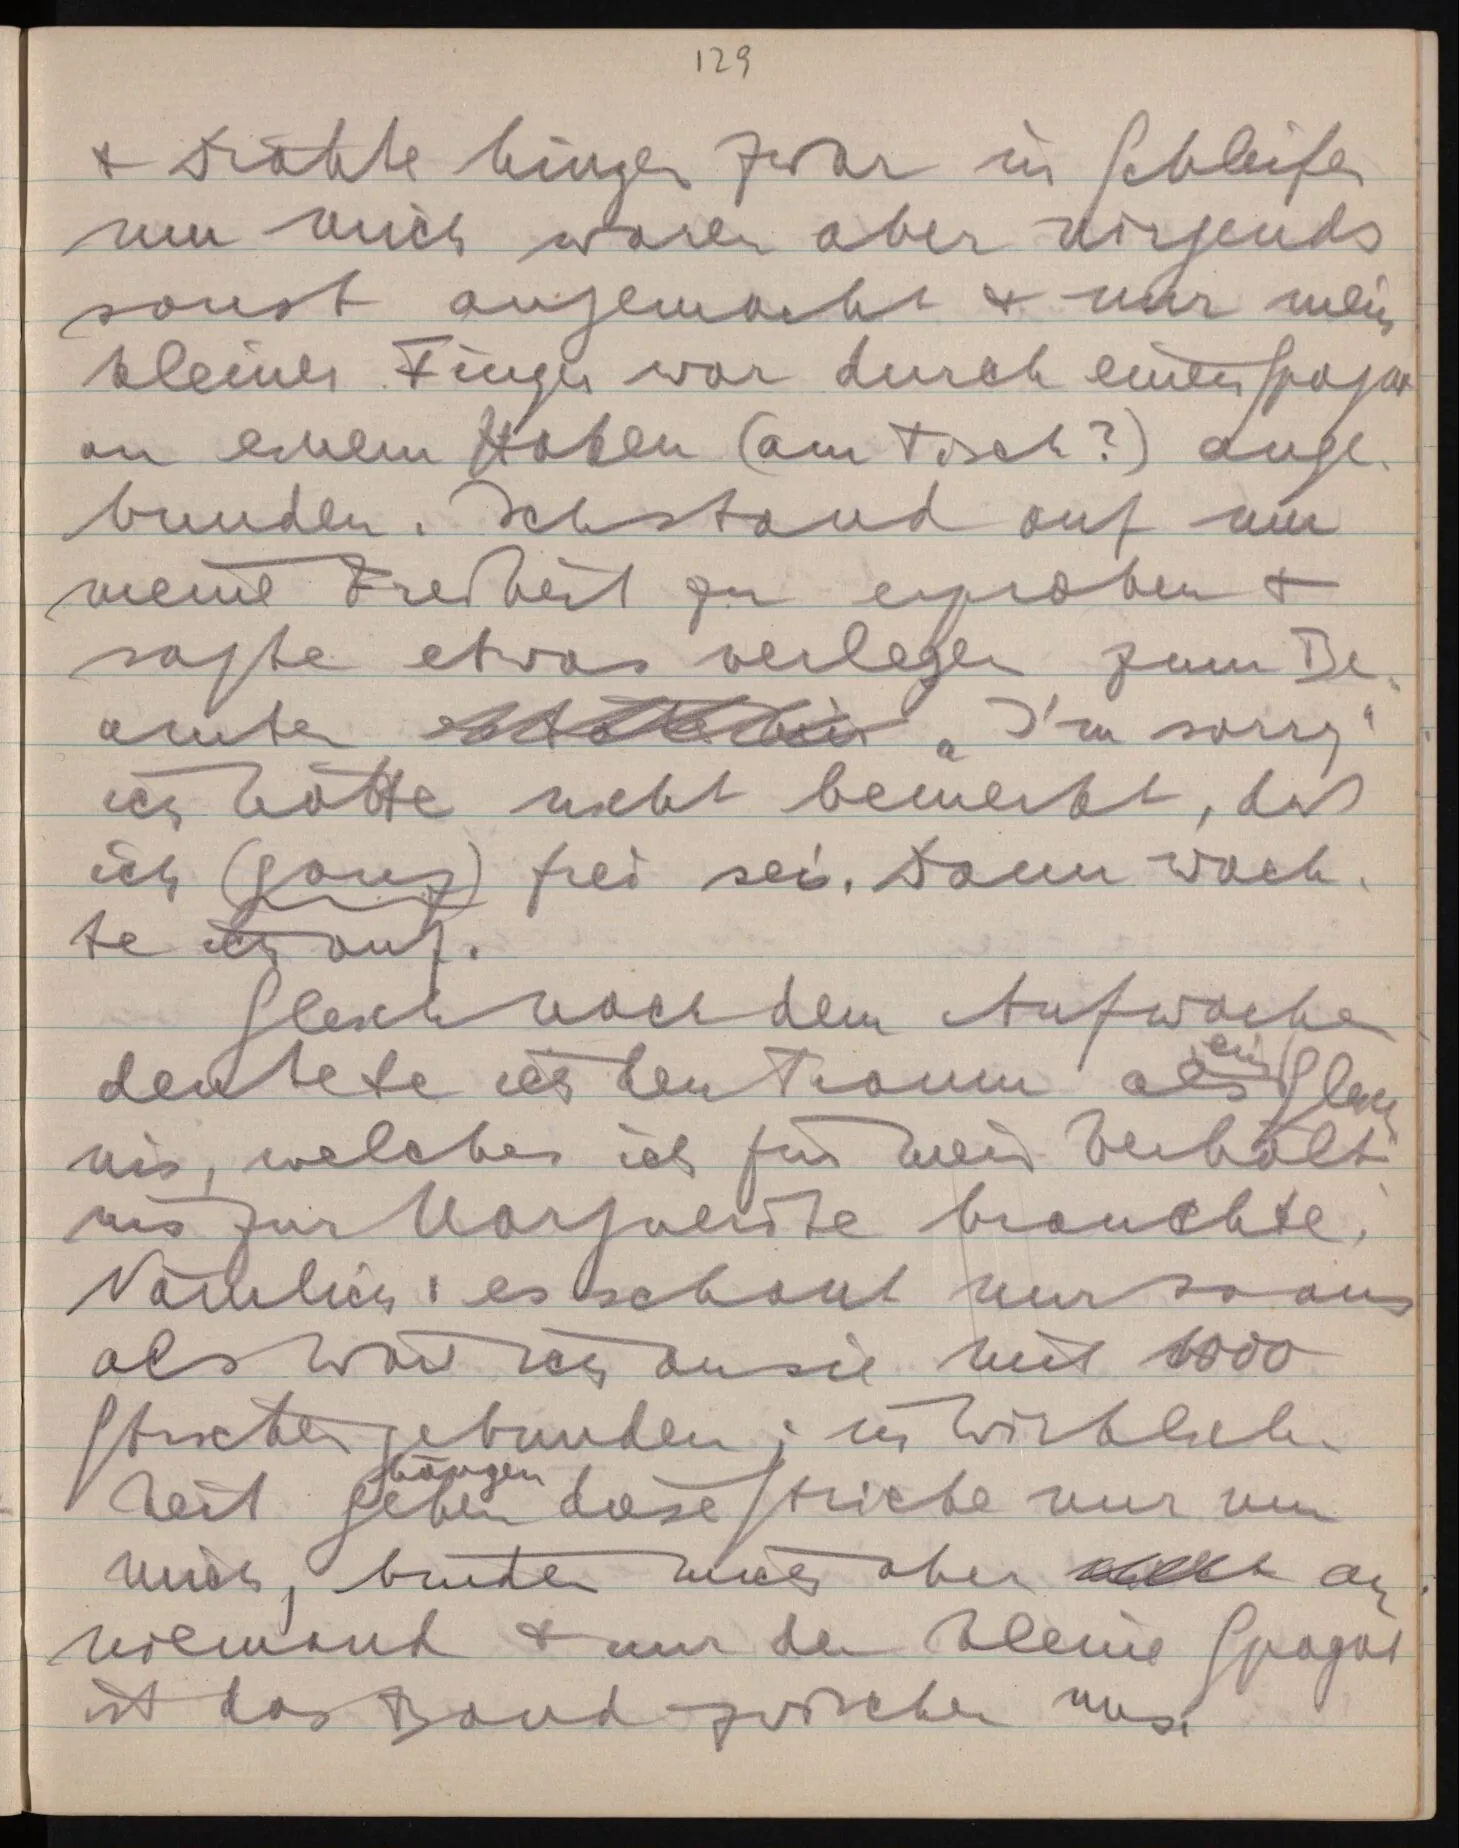 129
& Drähte hingen zwar in Schleifen
um mich waren aber nirgends
sonst angemacht & nur mein
kleiner Finger war durch einen Spagat
an einem Haken (am Tisch?) ange-
bunden. Ich stand auf um
meine Freiheit zu erproben &
sagte etwas verlegen zum Be-
amten „I'm sorry“
ich hätte nicht bemerkt, daß
ich (ganz) frei sei. Dann wach-
te ich auf.
Gleich nach dem Aufwachen
deutete ich den Traum als ein Gleich
nis, welches ich für mein Verhält-
nis zur Marguerite brauchte.
Nämlich: es schaut nur so aus
als wär ich an sie mit 1000
Stricken gebunden; in Wirklich-
keit gehen hängen diese Stricke nur um
mich, binden mich aber an
niemand & nur der kleine Spagat
ist das Band zwischen uns.